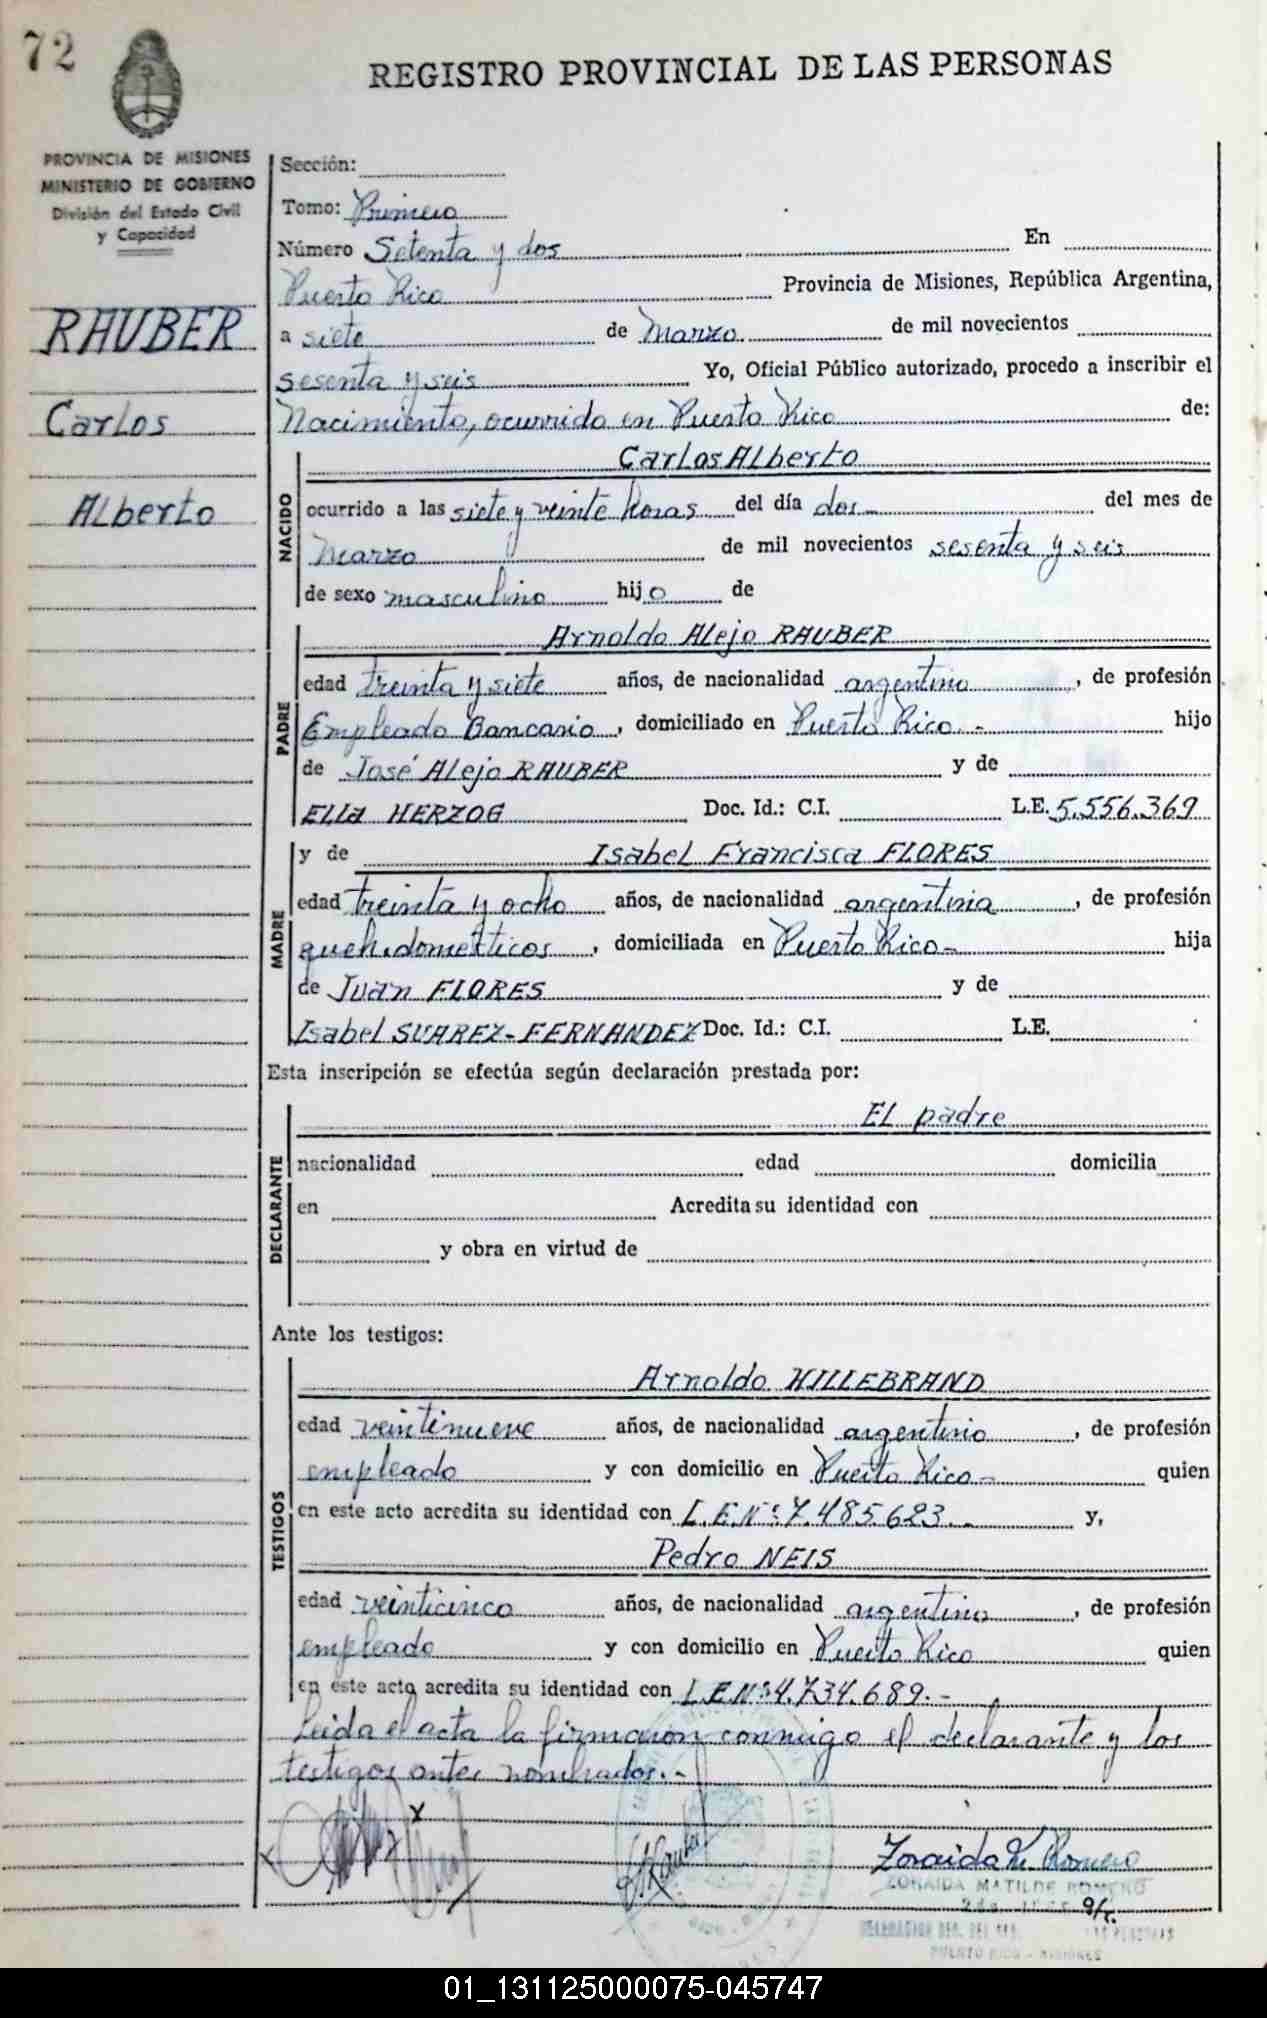 72
REGISTRO PROVINCIAL DE LAS PERSONAS
PROVINCIA DE MISIONES
MINISTERIO DE GOBIERNO
División del Estado Civil
y Capacidad
RAUBER
Carlos
Alberto
Sección:
Tomo: Primero
Número Setenta y dos En
Puerto Rico Provincia de Misiones, República Argentina,
a siete de Marzo de mil novecientos
sesenta y seis Yo, Oficial Público autorizado, procedo a inscribir el
Nacimiento, ocurrido en Puerto Rico de:
NACIDO
Carlos Alberto
ocurrido a las siete y veinte horas del día dos- del mes de
Marzo de mil novecientos sesenta y seis
de sexo masculino hijo de
PADRE
Arnoldo Alejo RAUBER
edad treinta y siete años, de nacionalidad argentino, de profesión
Empleado Bancario, domiciliado en Puerto Rico.- hijo
de José Alejo RAUBER y de
Ella HERZOG Doc. Id.: C.I. L.E. 5.556.369
MADRE
y de Isabel Francisca FLORES
edad treinta y ocho años, de nacionalidad argentina, de profesión
queh.domésticos, domiciliada en Puerto Rico- hija
de Juan FLORES y de
Isabel SUAREZ-FERNANDEZ Doc. Id.: C.I. L.E.
Esta inscripción se efectúa según declaración prestada por:
DECLARANTE
El padre
nacionalidad edad domicilia
en Acredita su identidad con
y obra en virtud de
Ante los testigos:
TESTIGOS
Arnoldo HILLEBRAND
edad veintinueve años, de nacionalidad argentino, de profesión
empleado y con domicilio en Puerto Rico- quien
en este acto acredita su identidad con L.E.Nº:7.485.623.- y,
Pedro NEIS
edad veinticinco años, de nacionalidad argentino, de profesión
empleado y con domicilio en Puerto Rico quien
en este acto acredita su identidad con L.E.Nº:4.734.689.-
Leida el acta la firmaron conmigo el declarante y los
testigos antes nombrados.-
Zoraida M. Romero
ZORAIDA MATILDE ROMERO
PUERTO RICO - MISIONES
01_131125000075-045747